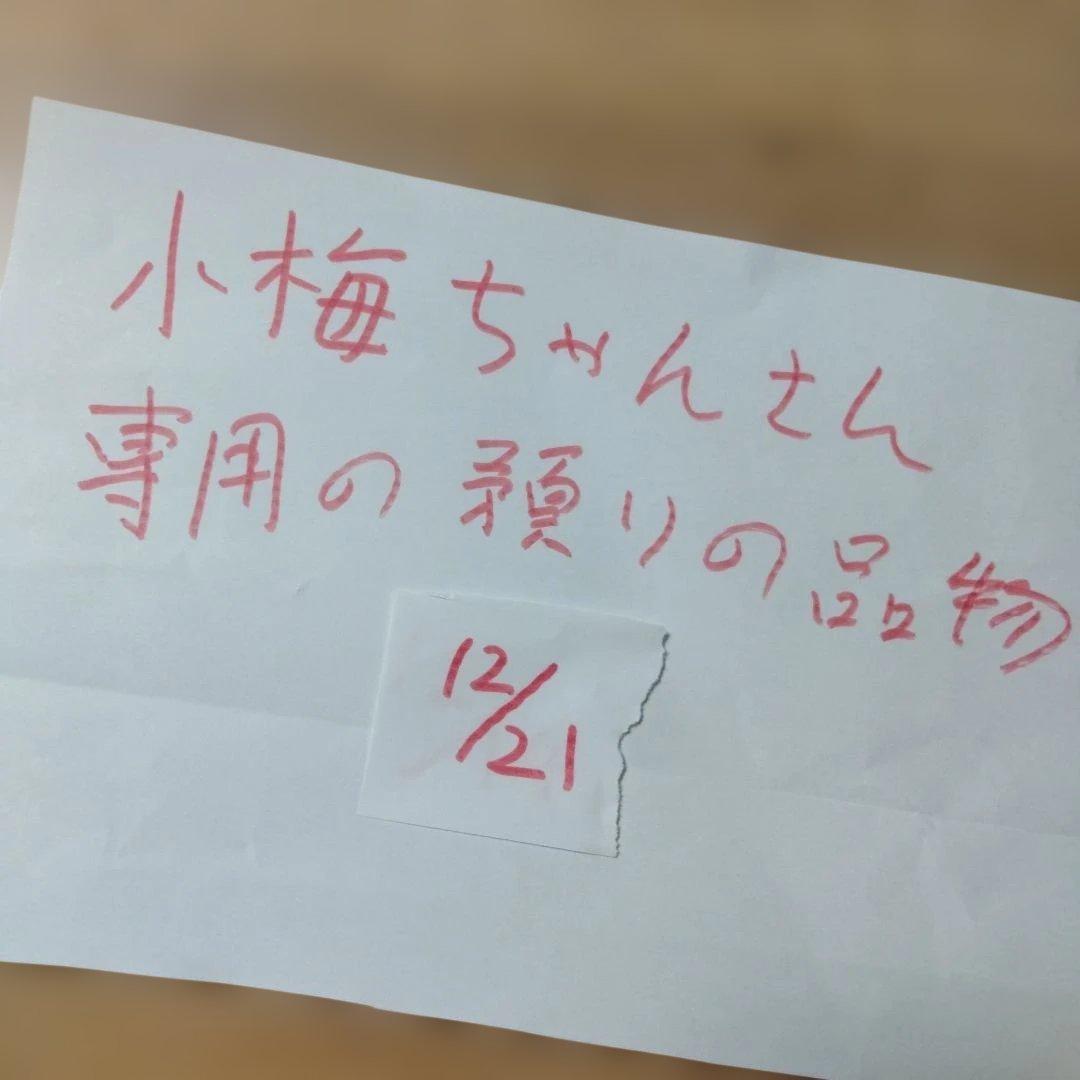 小梅ちゃんさん
専用の預りの品物
12/21